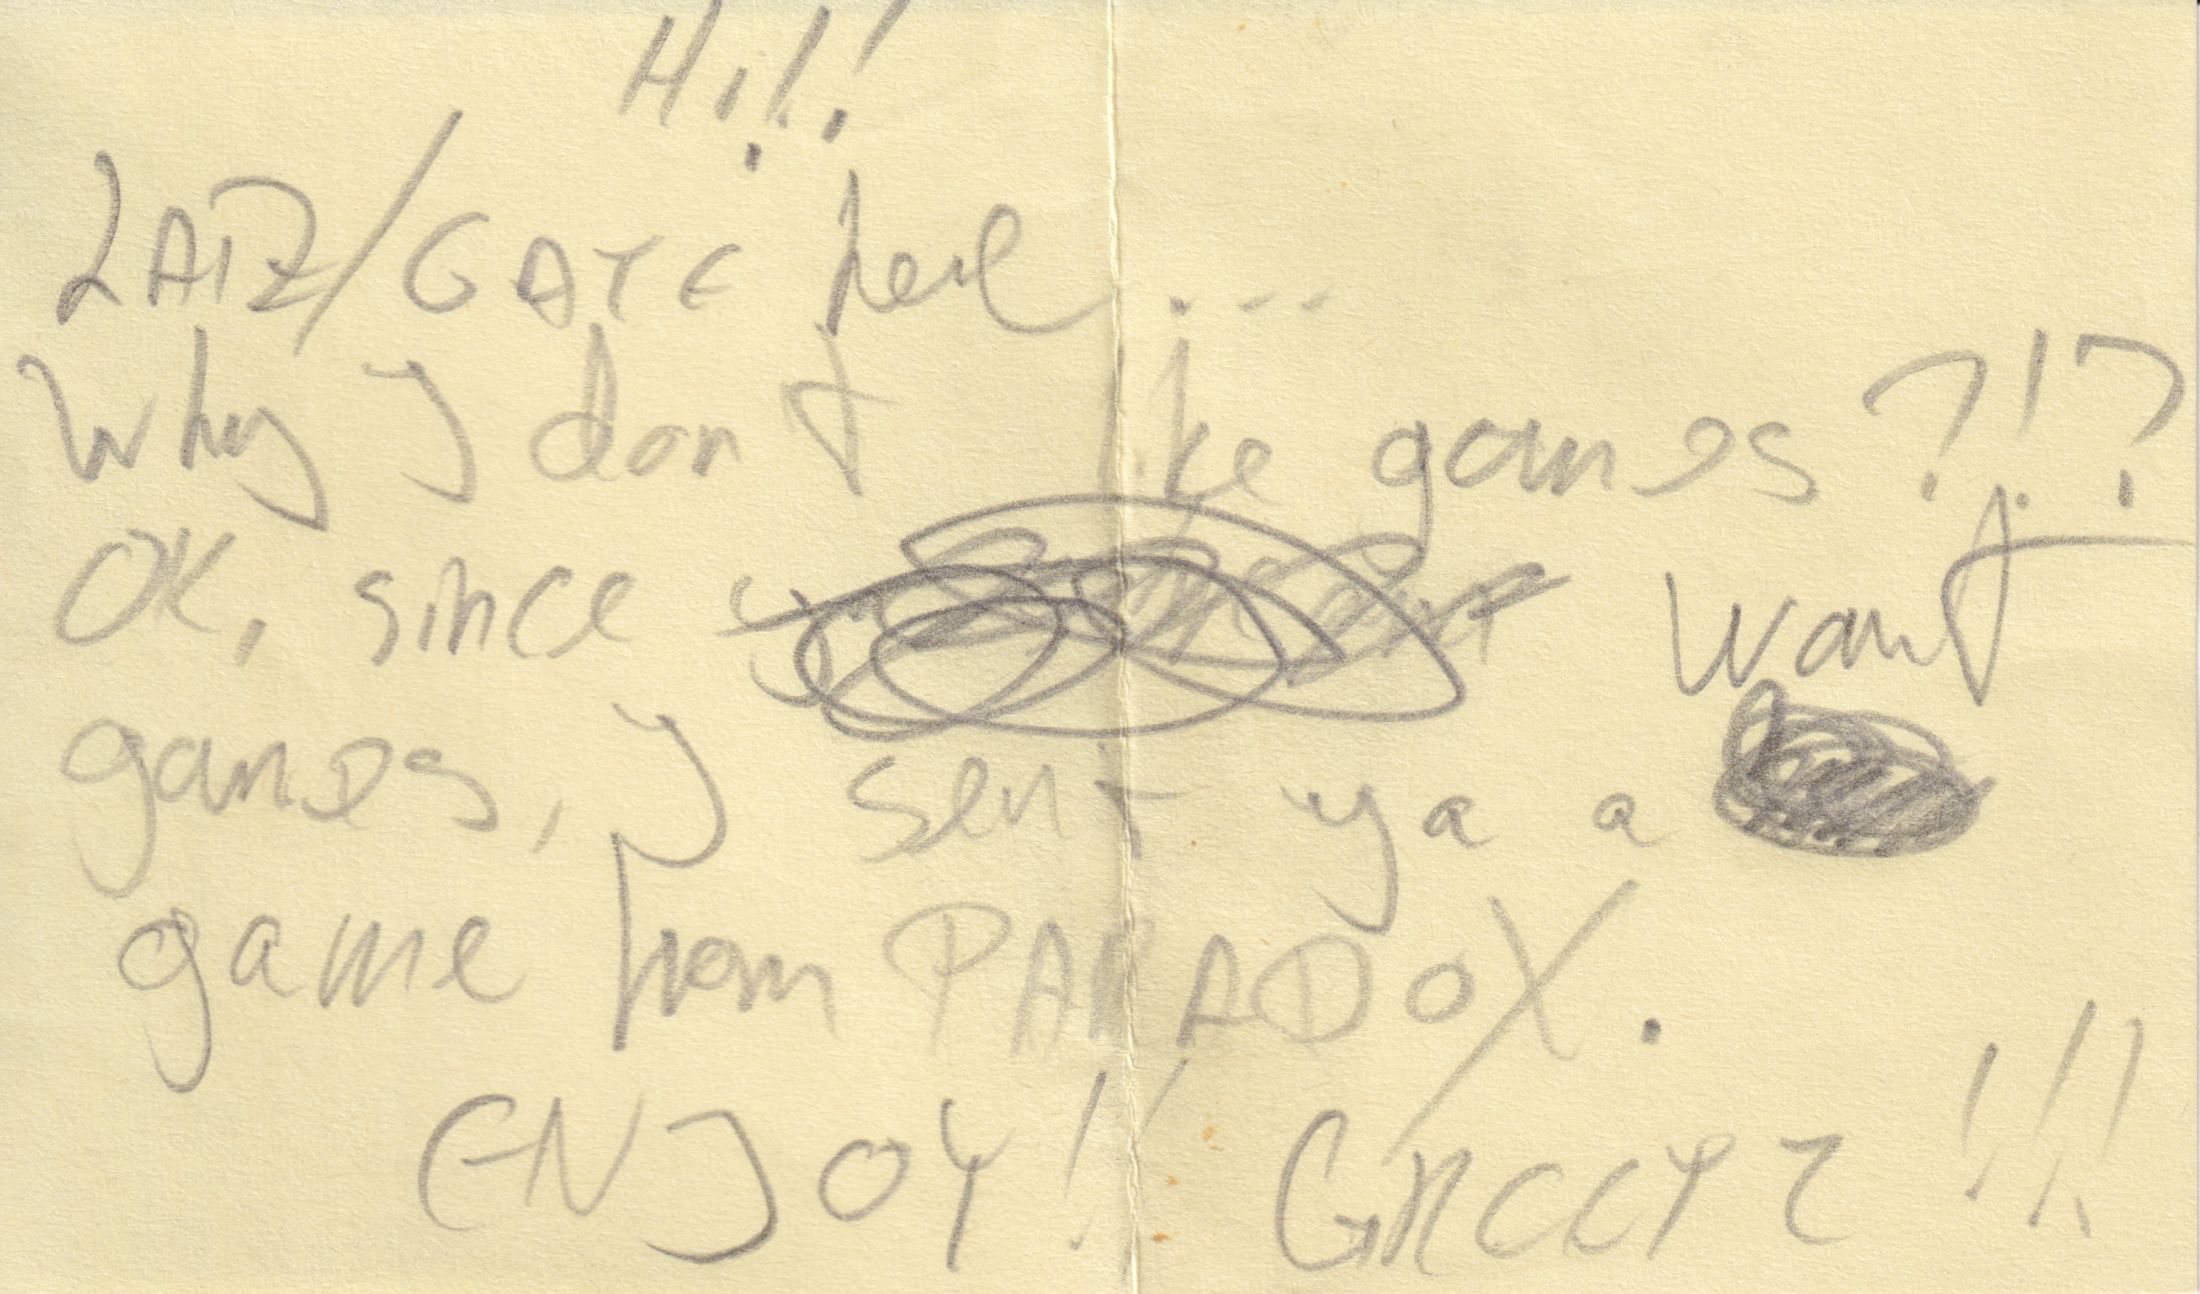 Hi!!!
LAIZ/GATE here...
Why I don't like games?!?
OK, since want
games, I sent ya a
game from PARADOX.
ENJOY!! GREETZ!!!